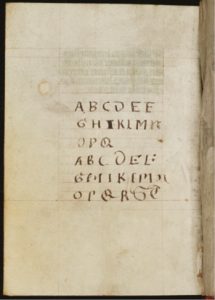 ABCDEF
GHIKLMN
OPQ
ABCDEF
GHIKLMN
OPQRST